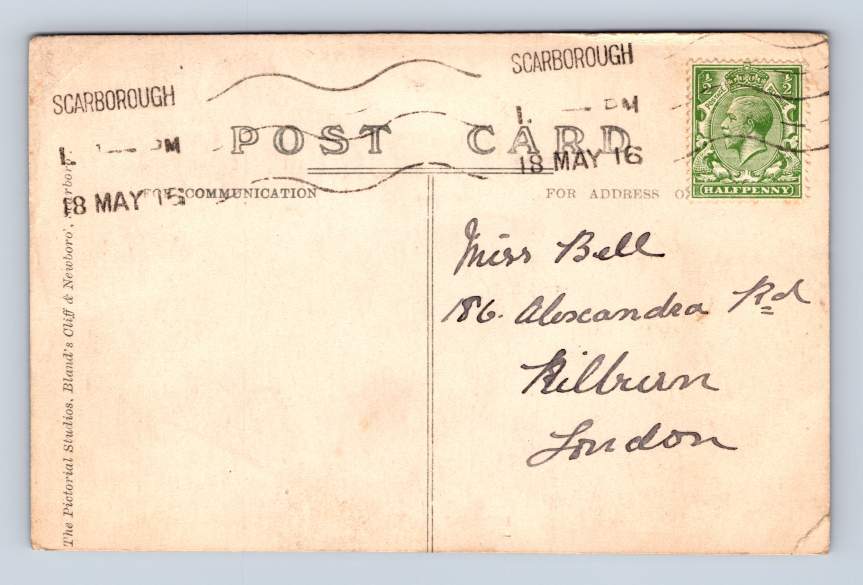 SCARBOROUGH
PM
18 MAY 16
SCARBOROUGH
PM
18 MAY 16
POST CARD
FOR COMMUNICATION
FOR ADDRESS
½ ½
POSTAGE
HALFPENNY
Miss Bell
186. Alexandra Rd
Kilburn
London
The Pictorial Studios, Bland's Cliff & Newboro',